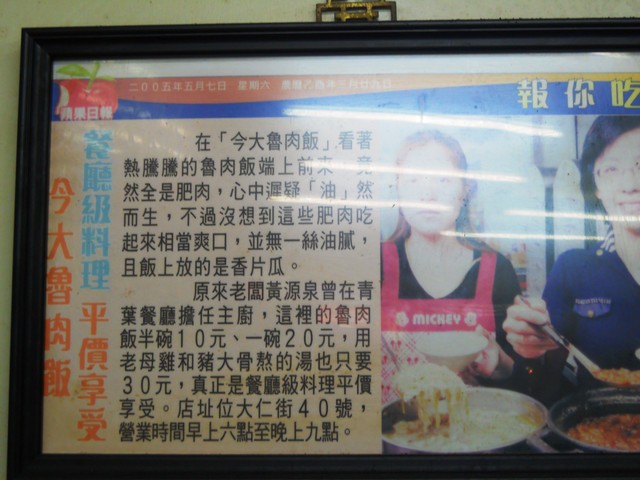 二００五年五月七日 星期六 農曆乙酉年三月廿九日
蘋果日報
報你吃
餐廳級料理 平價享受
今大魯肉飯
在「今大魯肉飯」看著
熱騰騰的魯肉飯端上前來，竟
然全是肥肉，心中遲疑「油」然
而生，不過沒想到這些肥肉吃
起來相當爽口，並無一絲油膩，
且飯上放的是香片瓜。
原來老闆黃源泉曾在青
葉餐廳擔任主廚，這裡的魯肉
飯半碗１０元、一碗２０元，用
老母雞和豬大骨熬的湯也只要
３０元，真正是餐廳級料理平價
享受。店址位大仁街４０號，
營業時間早上六點至晚上九點。
MICKEY